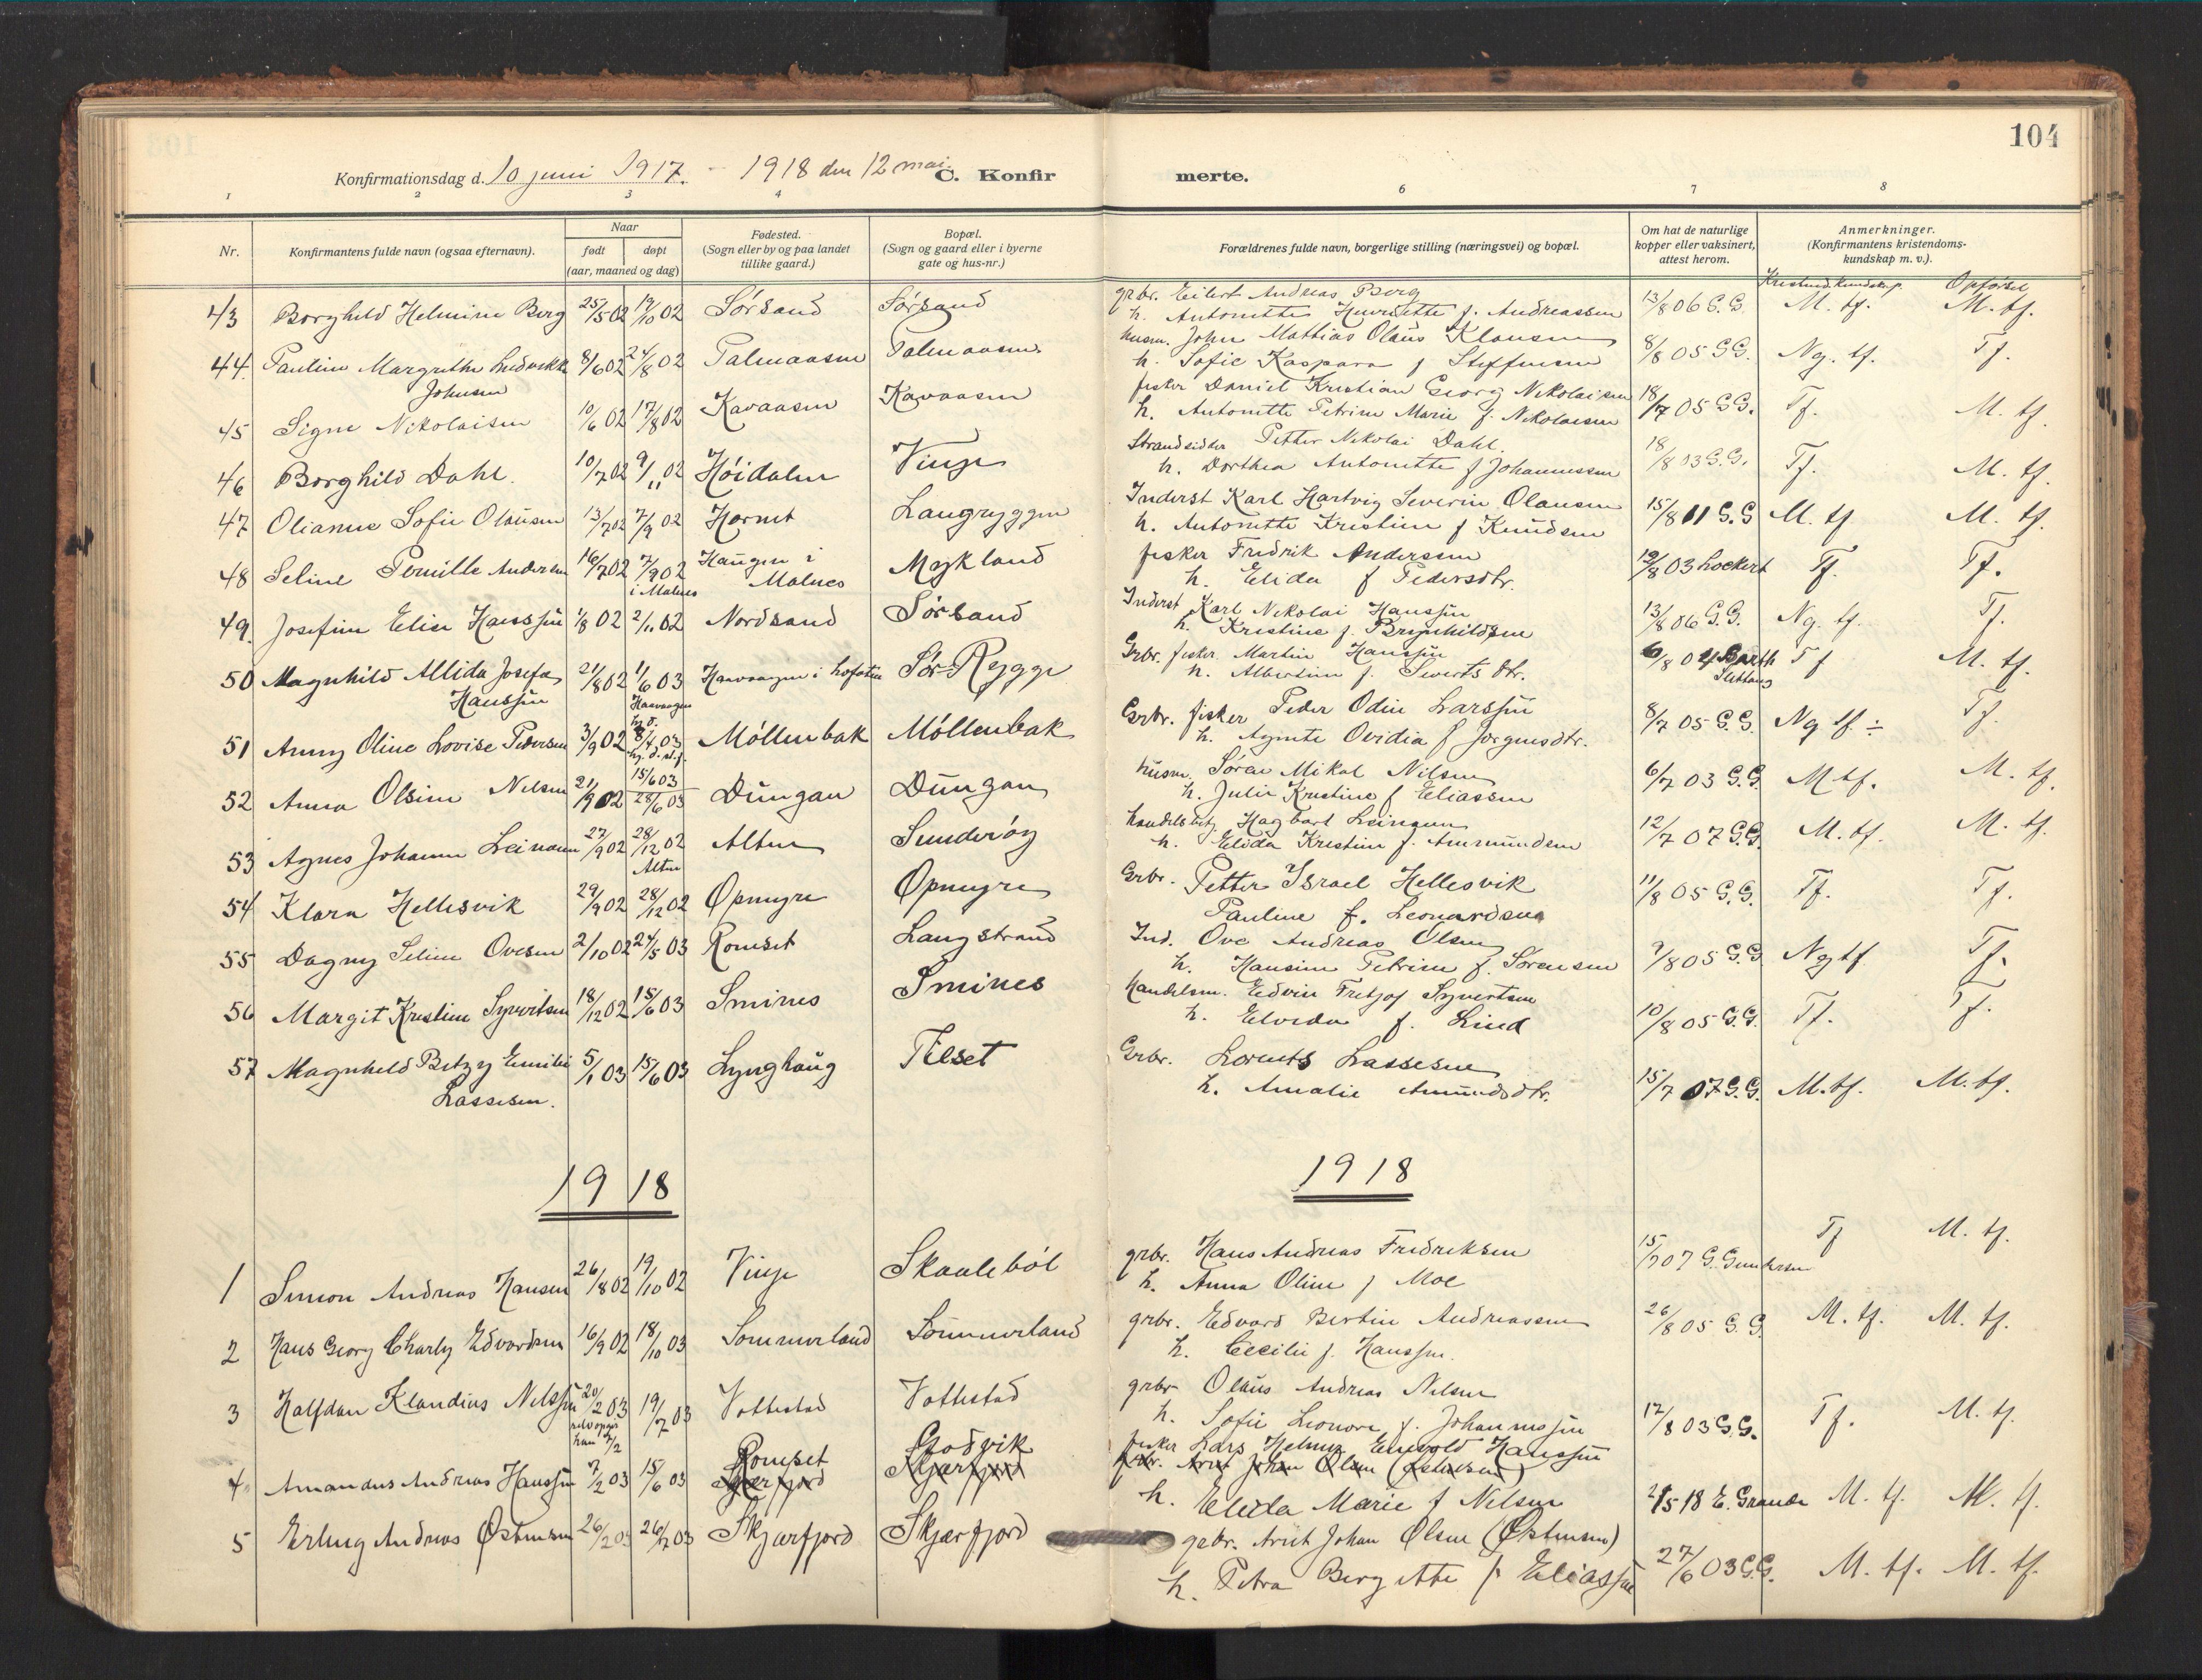 104
Konfirmationsdag d. 10 juni 1917. - 1918 den 12 mai. C. Konfirmerte.
1 2 3 4 6 7 8
Nr.
Konfirmantens fulde navn (ogsaa efternavn).
Naar
født døpt
(aar, maaned og dag)
Fødested.
(Sogn eller by og paa landet
tillike gaard.)
Bopæl.
(Sogn og gaard eller i byerne
gate og hus-nr.)
Forældrenes fulde navn, borgerlige stilling (næringsvei) og bopæl.
Om hat de naturlige
kopper eller vaksinert,
attest herom.
Anmerkninger.
(Konfirmantens kristendoms-
kundskap m. v.).
Kristend.kundskap. Opførsel
43 Borghild Helmine Berg 25/5 02 19/10 02 Sørsand Sørsand grbr. Eilert Andreas Berg 13/8 06 G.G. M. tf. M. tf.
h. Antonette Henriette f. Andreassen
44. Pauline Margrethe Ludvikke 8/6 02 24/8 02 Talmaasen Talmaasen husm. John Mathias Olaus Klausen 8/8 05 G.G. Ng. tf. Tf.
Johnsen h. Sofie Kaspara f Steffensen
45 Signe Nikolaisen 10/6 02 17/8 02 Kavaasen Kavaasen fisker Daniel Kristian Georg Nikolaisen 18/7 05 G.G. Tf. M. tf.
h. Antonette Petrine Marie f. Nikolaisen
46 Borghild Dahl. 10/7 02 9/11 02 Høidalen Vinje Strandsidder Petter Nikolai Dahl. 18/8 03 G.G. Tf. M. tf.
h. Dorthea Antonette f Johannessen
47 Olianne Sofie Olausen 13/7 02 7/9 02 Hornet Langryggen Inderst Karl Hartvig Severin Olausen 15/8 11 G.G M. tf M. tf.
h. Antonette Kristine f Knudsen
48 Seline Pernille Andersen 16/7 02 7/9 02 Haugen i Mykland fisker Fredrik Andersen 19/8 03 Lockert Tf. Tf.
i Malnes Malnes h. Elida f Pedersdtr.
49. Josefine Elise Hanssen 1/8 02 2/11 02 Nordsand Sørsand Inderst Karl Nikolai Hanssen 13/8 06 G.G. Ng. tf. Tf.
h. Kristine f. Brynhildsen
50 Magnhild Allida Josefa 21/8 02 1/6 03 Havvaagen i Lofoten Sør-Rygge Grbr. fisker Martin Hanssen 6/8 04 Barth Tf M. tf.
Hanssen h. Albertine f. Siverts dtr.
51 Anny Oline Lovise Pedersen 3/9 02 hj. d. 8/4 03 Møllenbak Møllenbak Grbr. fisker Peder Odin Larssen 8/7 05 G.G. Ng tf ÷ Tf.
h. Agnete Ovidia f Jørgensdtr.
52 Anna Olsine Nilsen 21/9 02 15/6 03 28/6 03 Dungan Dungan husm. Søren Mikal Nilsen 6/7 03 G.G M tf. M. tf.
h. Julie Kristine f Eliassen
53 Agnes Johanne Leinann 27/9 02 28/12 02 Alten Sunderøy handelsbetj. Hagbart Leinann 12/7 07 G.G. M. tf. M. tf.
Alten h. Elida Kristine f. Ammundsen
54 Klara Hellesvik 29/9 02 28/12 02 Opmyre Opmyre Grbr. Petter Israel Hellesvik 11/8 05 G.G. Tf. Tf.
Pauline f. Leonardsen
55 Dagny Seline Ovesen 2/10 02 24/5 03 Romset Langstrand Ind. Ove Andreas Olsen 9/8 05 G.G Ng tf Tf.
h. Hansine Petrine f. Sørensen
56 Margit Kristine Syvertsen 18/12 02 15/6 03 Smines Smines Handelsm. Edvin Fritjof Syvertsen 10/8 05 G.G. Tf. Tf.
h. Elvida f. Lind
57 Magnhild Betzy Emilie 5/1 03 15/6 03 Lynghaug Tilset Grbr. Lorents Lassesen 15/7 07 G.G. M. tf. M. tf.
Lassesen. h. Amalie Amundsdtr.
1918 1918
1 Simon Andreas Hansen 26/8 02 19/10 02 Vinje Skaalebøl grbr. Hans Andreas Fredriksen 15/7 07 G. Gundersen Tf M. tf.
h. Anna Oline f Moe
2 Hans Georg Charly Edvardsen 16/9 02 18/10 03 Sommerland Sommerland grbr. Edvard Bertin Andreassen 26/8 05 G. G. M. tf. M. tf.
h. Cecilie f. Hanssen.
3 Halfdan Klaudius Nilssen 20/2 03 19/7 03 Vottestad Vottestad grbr Olaus Andreas Nilsen 17/8 03 G.G. Tf. M. tf.
selv opgir han 7/2 h. Sofie Leonore f. Johannessen
4 Amandus Andreas Hanssen 7/2 03 15/6 03 Romset Godvik fisker Lars Helmer Enevold Hanssen 2/5 18 E. Grande M. tf. M. tf.
Skjærfjord Skjærfjord grbr. Arnt Johan Olsen (Østensen)
h. Elida Marie f Nilsen
5 Erling Andreas Østensen 26/2 03 26/7 03 Skjærfjord Skjærfjord grbr. Arnt Johan Olsen (Østensen) 27/6 03 G.G. M. tf. M. tf.
h. Petra Bergitte f. Eliassen